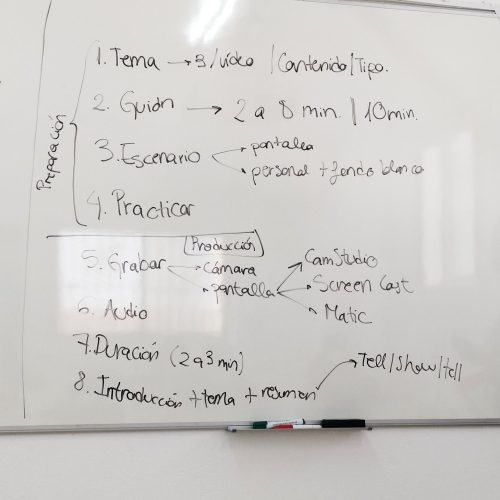 Preparación
1. Tema → 3/video | Contenido | Tipo.
2. Guión → 2 a 8 min. | 10min.
3. Escenario pantalla
personal + fondo blanco
4. Practicar
Producción
5. Grabar → cámara
→ pantalla → CamStudio
→ Screen Cast
→ Matic
6. Audio
7. Duración (2 a 3 min)
8. Introducción + tema + resumen → Tell/Show/tell